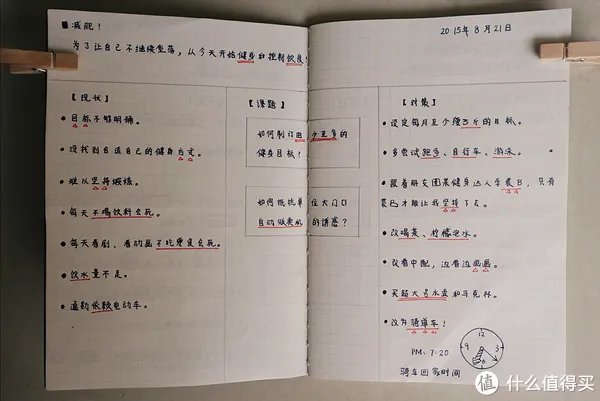 ■减肥!
为了让自己不继续坠落,从今天开始健身和控制饮食!
2015年8月21日
【现状】
• 目标不够明确。
• 没找到合适自己的健身方式。
• 难以坚持锻炼。
• 每天不喝饮料会死。
• 每天看剧、看动画不吃零食会死。
• 饮水量不足。
• 通勤依赖电动车。
【课题】
如何制订出 今至多的
健身目标?
如何抵抗革 住大门口
自动贩卖机 的诱惑?
【对策】
• 设定每月至少瘦3斤的目标。
• 多尝试跑步、自行车、游泳。
• 跟着朋友圈某健身达人学装B,只有
装B才能让我坚持下去。
• 改喝茶、柠檬泡水。
• 改看中配,边看边画画。
• 买超大号水壶和马克杯。
• 改为骑单车!
12
3
6
9
PM: 7:20
骑车回家时间
值 什么值得买